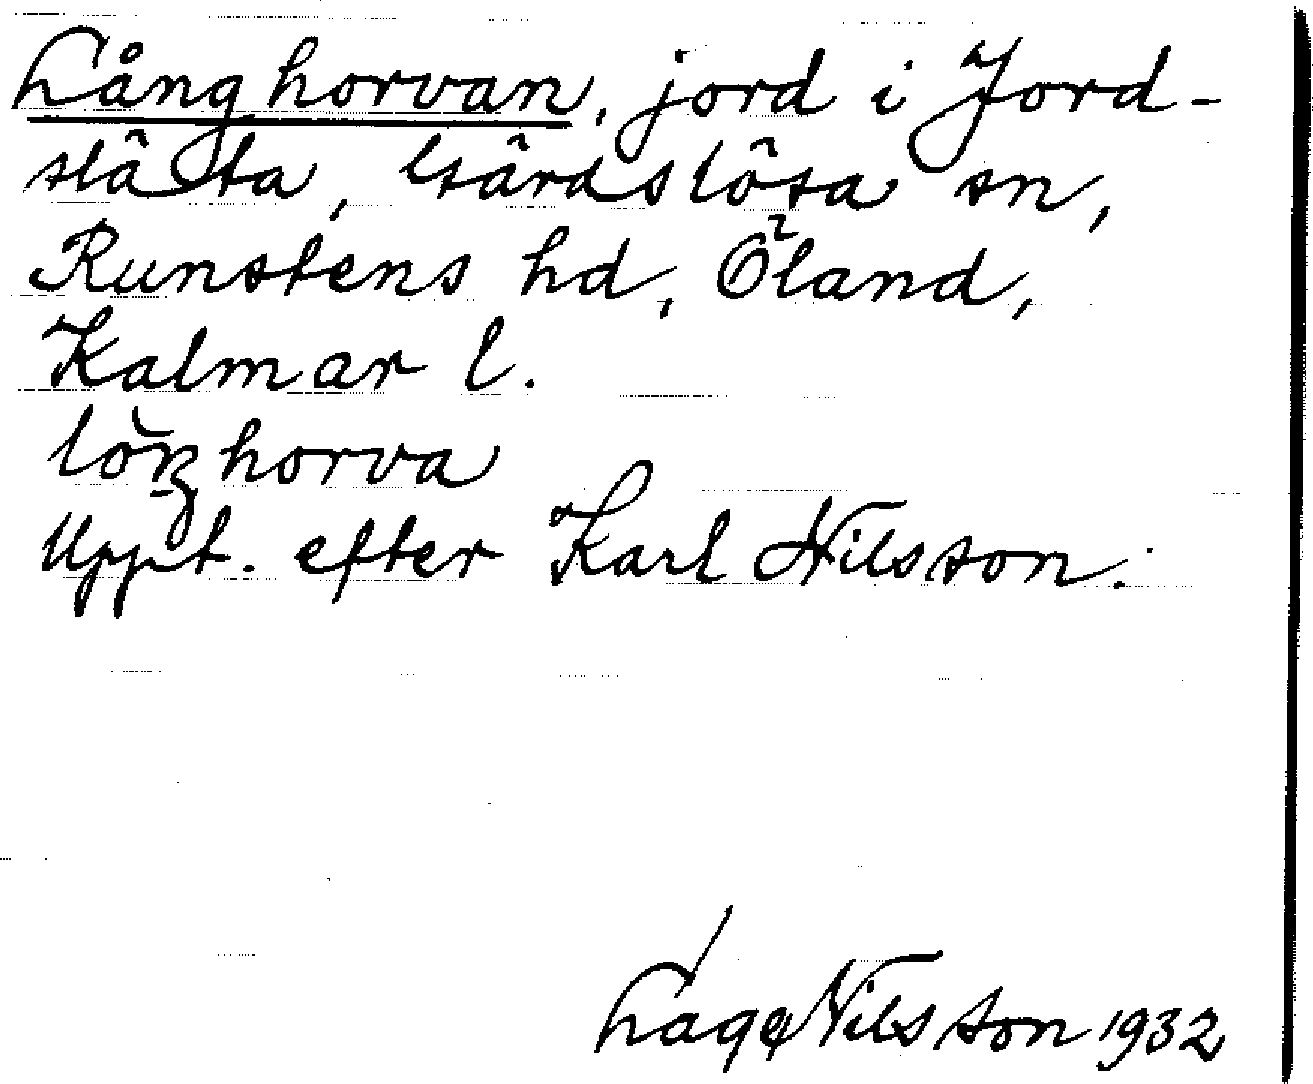 Långhorvan, jord i Jord-
släta, Gärdslösa sn,
Runstens hd, Öland,
Kalmar l.
horva
Uppt. efter Karl Nilsson.
Lage Nilsson 1932